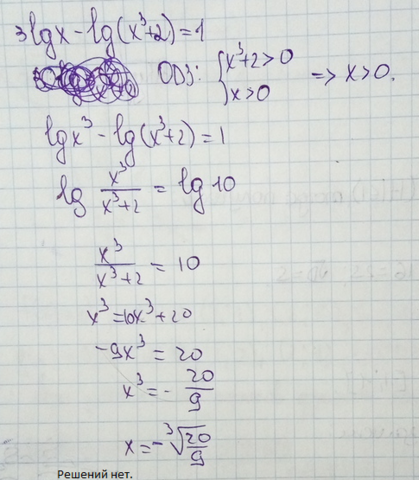 3lgx - lg(x³+2) = 1
ОДЗ: { x³+2>0 x>0 => x>0.
lgx³ - lg(x³+2) = 1
lg x³/(x³+2) = lg 10
x³/(x³+2) = 10
x³ = 10x³ + 20
-9x³ = 20
x³ = - 20/9
x = - ³√(20/9)
Решений нет.